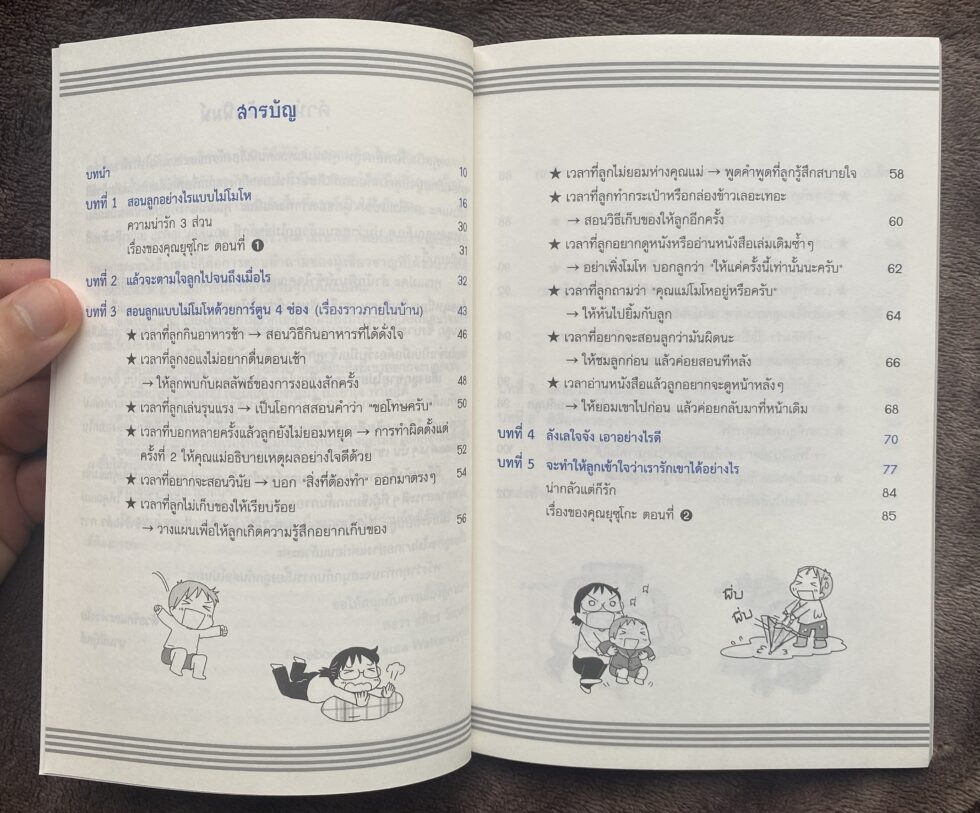 สารบัญ
บทนำ 10
บทที่ 1 สอนลูกอย่างไรแบบไม่โมโห 16
ความน่ารัก 3 ส่วน 30
เรื่องของคุณยุซุโกะ ตอนที่ ❶ 31
บทที่ 2 แล้วจะตามใจลูกไปจนถึงเมื่อไร 32
บทที่ 3 สอนลูกแบบไม่โมโหด้วยการ์ตูน 4 ช่อง (เรื่องราวภายในบ้าน) 43
★ เวลาที่ลูกกินอาหารช้า → สอนวิธีกินอาหารที่ได้ดั่งใจ 46
★ เวลาที่ลูกงอแงไม่อยากตื่นตอนเช้า
→ ให้ลูกพบกับผลลัพธ์ของการงอแงสักครั้ง 48
★ เวลาที่ลูกเล่นรุนแรง → เป็นโอกาสสอนคำว่า "ขอโทษครับ" 50
★ เวลาที่บอกหลายครั้งแล้วลูกยังไม่ยอมหยุด → การทำผิดตั้งแต่
ครั้งที่ 2 ให้คุณแม่อธิบายเหตุผลอย่างใจดีด้วย 52
★ เวลาที่อยากจะสอนวินัย → บอก "สิ่งที่ต้องทำ" ออกมาตรงๆ 54
★ เวลาที่ลูกไม่เก็บของให้เรียบร้อย
→ วางแผนเพื่อให้ลูกเกิดความรู้สึกอยากเก็บของ 56
★ เวลาที่ลูกไม่ยอมห่างคุณแม่ → พูดคำพูดที่ลูกรู้สึกสบายใจ 58
★ เวลาที่ลูกทำกระเป๋าหรือกล่องข้าวเลอะเทอะ
→ สอนวิธีเก็บของให้ลูกอีกครั้ง 60
★ เวลาที่ลูกอยากดูหนังหรืออ่านหนังสือเล่มเดิมซ้ำๆ
→ อย่าเพิ่งโมโห บอกลูกว่า "ให้แค่ครั้งนี้เท่านั้นนะครับ" 62
★ เวลาที่ลูกถามว่า "คุณแม่โมโหอยู่หรือครับ"
→ ให้หันไปยิ้มกับลูก 64
★ เวลาที่อยากจะสอนลูกว่ามันผิดนะ
→ ให้ชมลูกก่อน แล้วค่อยสอนทีหลัง 66
★ เวลาอ่านหนังสือแล้วลูกอยากจะดูหน้าหลังๆ
→ ให้ยอมเขาไปก่อน แล้วค่อยกลับมาที่หน้าเดิม 68
บทที่ 4 ลังเลใจจัง เอาอย่างไรดี 70
บทที่ 5 จะทำให้ลูกเข้าใจว่าเรารักเขาได้อย่างไร 77
น่ากลัวแต่ก็รัก 84
เรื่องของคุณยุซุโกะ ตอนที่ ❷ 85
พึ่บ
พึ่บ